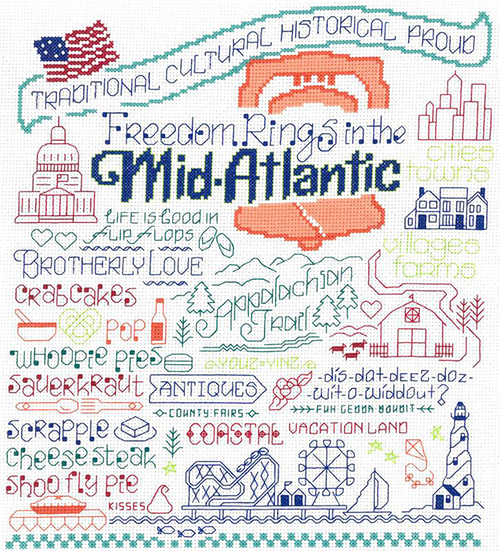 TRADITIONAL CULTURAL HISTORICAL PROUD
Freedom Rings in the
Mid-Atlantic
cities
towns
LIFE IS GOOD IN
FLIP FLOPS
villages
farms
BROTHERLY LOVE
CRABCAKES
Appalachian
Trail
POP
WHOOPIE PIES
YOUZ YINZ
SAUERKRAUT
ANTIQUES
-dis-dat-deez-doz-
-wit-o-widdout?
COUNTY FAIRS
FUH GEDDA BOUDIT
SCRAPPLE
COASTAL
VACATION LAND
Cheese steak
Shoo fly pie
KISSES